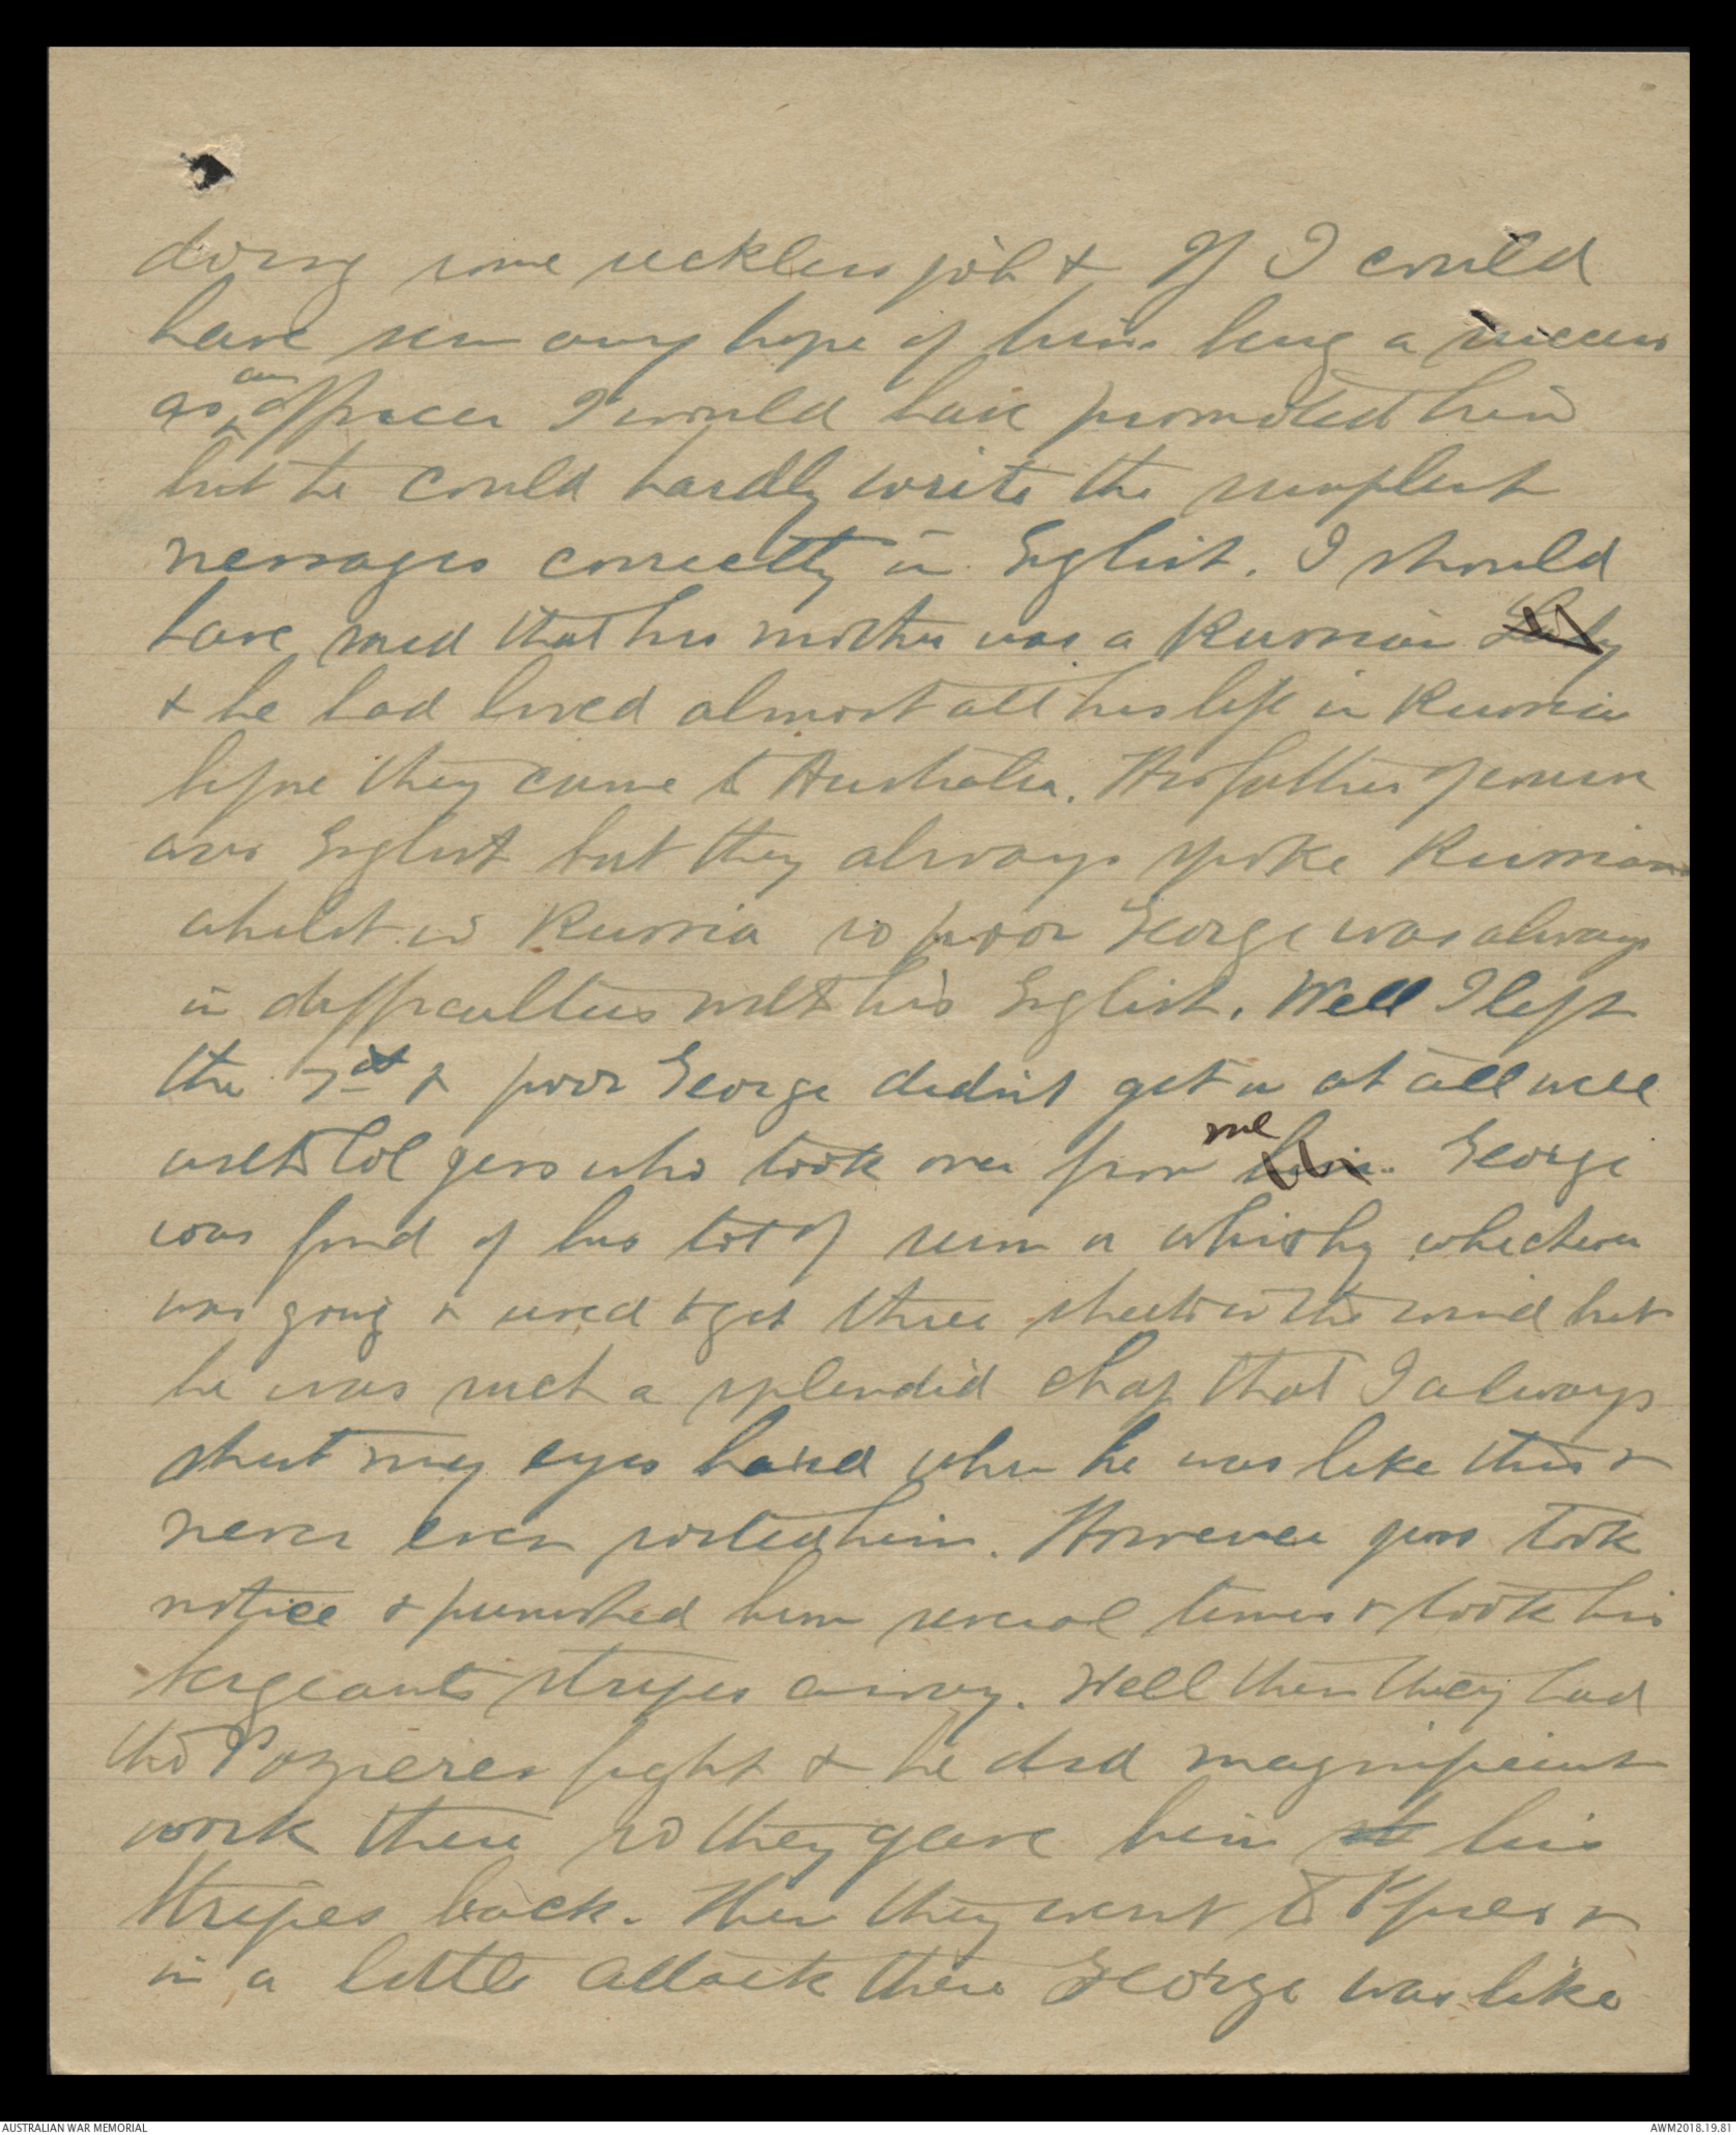 doing some reckless job & If I could
have seen any hope of him being a success
as an officer I would have promoted him
but he could hardly write the simplest
messages correctly in English. I should
have said that his mother was a Russian Lady
& he had lived almost all his life in Russia
before they came to Australia. His father of course
was English but they always spoke Russian
whilst in Russia so poor George was always
in difficulties with his English. Well I left
the & poor George didn't get on at all well
with Col Jess who took over from me him. George
was fond of his tot of rum or whisky whichever
was going & used to get three sheets in the wind but
he was such a splendid chap that I always
shut my eyes hard when he was like this &
never even him. However Jess took
notice & punished him several times & took his
sergeants stripes away. Well then they had
the Pozieres fight & he did magnificent
work there so they gave him his
stripes back. Then they went to Ypres &
in a little attack there George was like
AUSTRALIAN WAR MEMORIAL
AWM2018.19.81